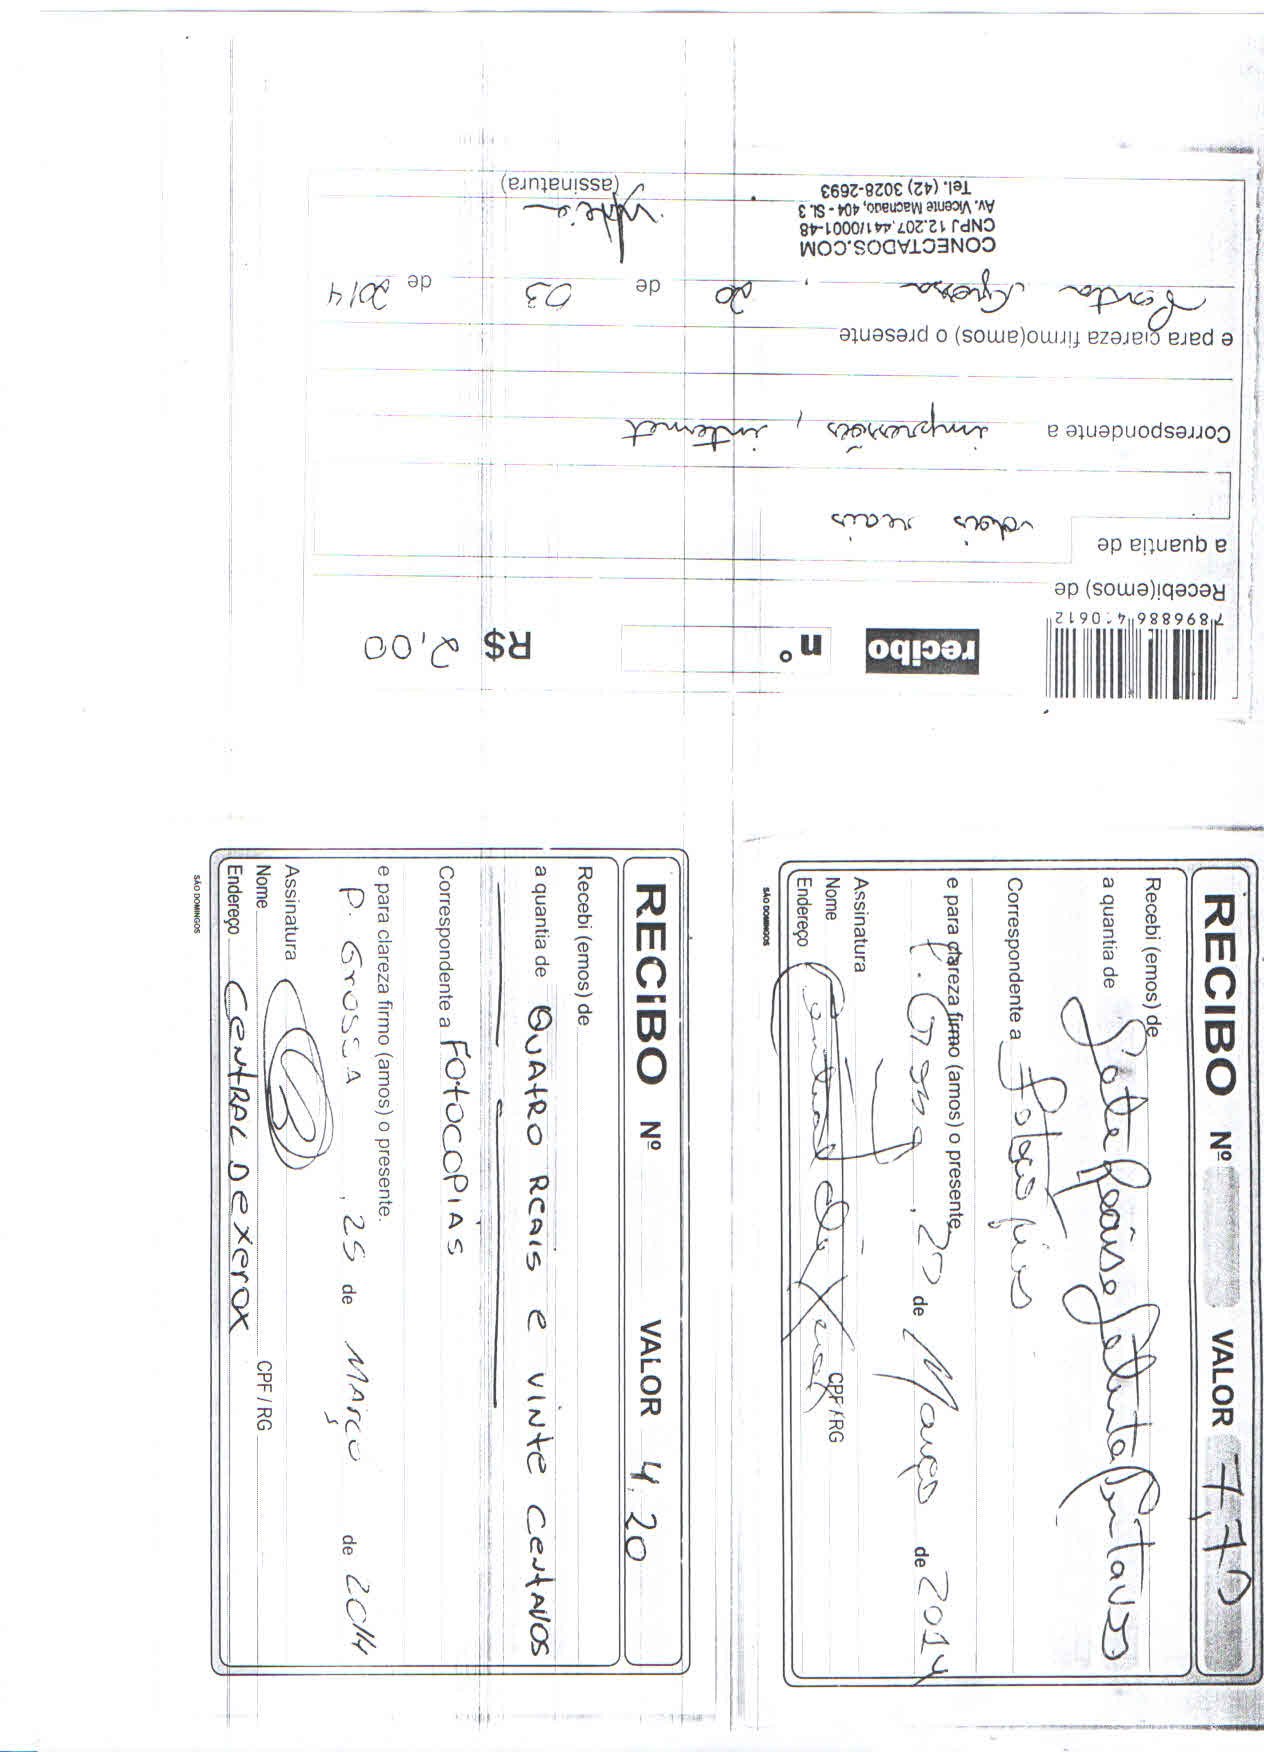 recibo nº R$ 2,00
7896886410612
Recebi(emos) de
a quantia de dois reais
Correspondente a impressões, internet
e para clareza firmo(amos) o presente
Ponta Grossa, 20 de 03 de 2014
CONECTADOS.COM
CNPJ 12.207.441/0001-48
Av. Vicente Machado, 404 - SL 3
Tel. (42) 3028-2693
(assinatura)
RECIBO Nº VALOR 7,70
Recebi (emos) de
a quantia de Sete Reais e Setenta Centavos
Correspondente a Fotocópias
e para clareza firmo (amos) o presente
P. Grossa, 20 de Março de 2014
Assinatura
Nome CPF / RG
Endereço Central do Xerox
SÃO DOMINGOS
RECIBO Nº VALOR 4,20
Recebi (emos) de
a quantia de QUATRO REAIS E VINTE CENTAVOS
Correspondente a FOTOCOPIAS
e para clareza firmo (amos) o presente.
P. GROSSA, 25 de MARÇO de 2014
Assinatura
Nome CPF / RG
Endereço CENTRAL DE XEROX
SÃO DOMINGOS